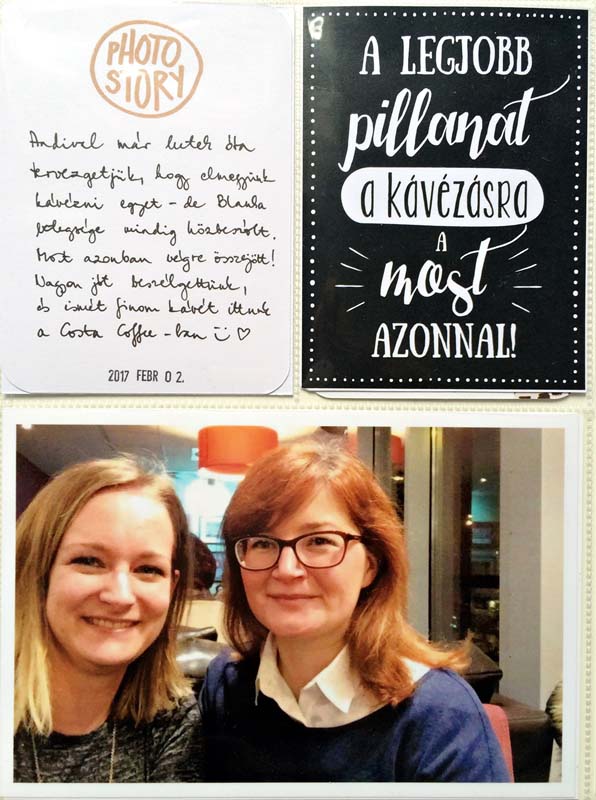 PHOTO
STORY
Andival már hetek óta
tervezgetjük, hogy elmegyünk
kávézni egyet - de Blanka
betegsége mindig közbeszólt.
Most azonban végre összejött!
Nagyon jót beszélgettünk,
és ismét finom kávét ittunk
a Costa Coffee-ban
2017 FEBR 02.
A LEGJOBB
pillanat
a kávézásra
A
most
AZONNAL!